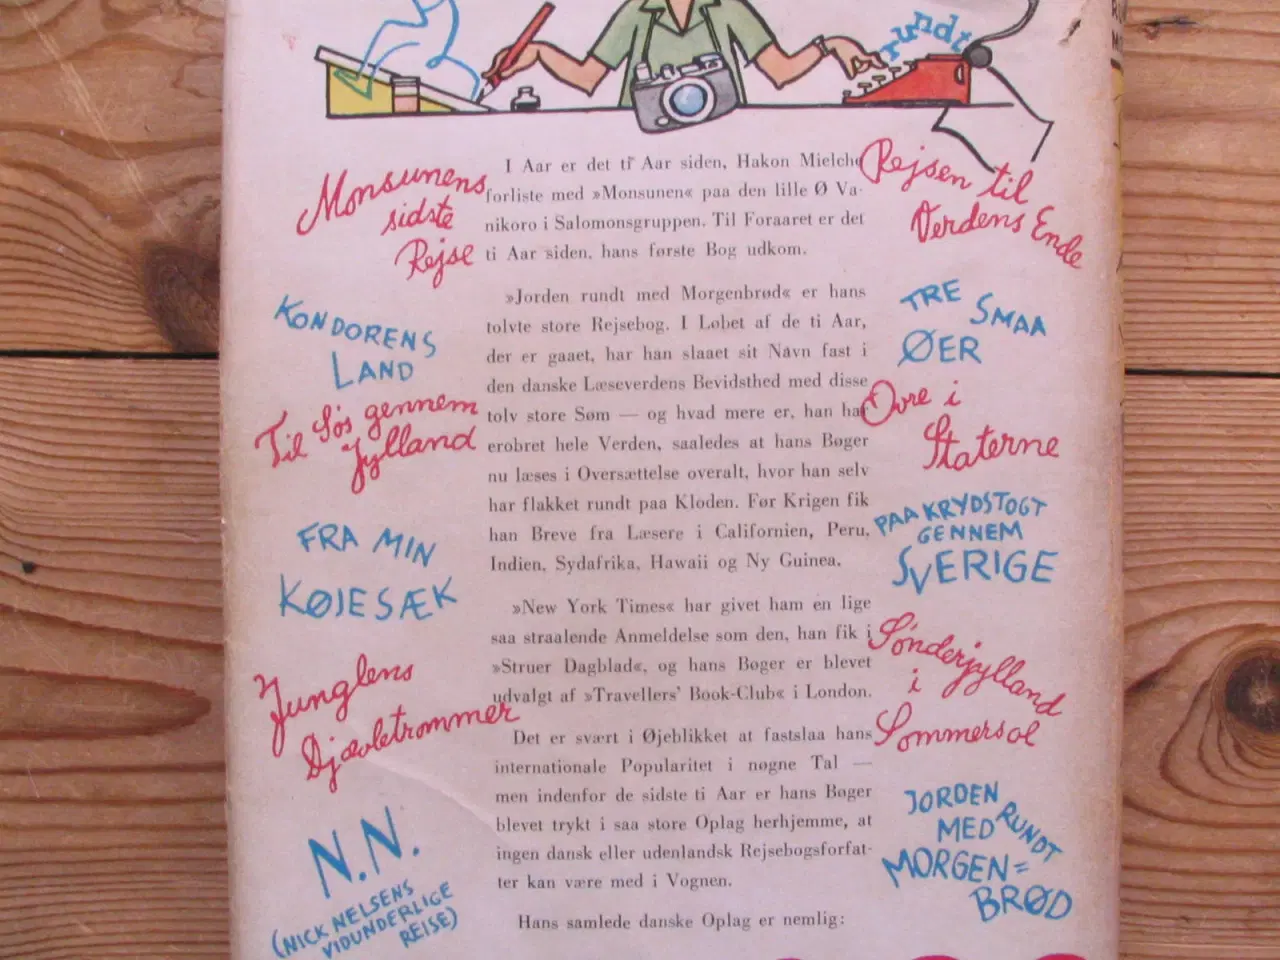 rundt
I Aar er det ti Aar siden, Hakon Mielche
forliste med »Monsunen« paa den lille Ø Va-
nikoro i Salomonsgruppen. Til Foraaret er det
ti Aar siden, hans første Bog udkom.
»Jorden rundt med Morgenbrød« er hans
tolvte store Rejsebog. I Løbet af de ti Aar,
der er gaaet, har han slaaet sit Navn fast i
den danske Læseverdens Bevidsthed med disse
tolv store Søm — og hvad mere er, han har
erobret hele Verden, saaledes at hans Bøger
nu læses i Oversættelse overalt, hvor han selv
har flakket rundt paa Kloden. Før Krigen fik
han Breve fra Læsere i Californien, Peru,
Indien, Sydafrika, Hawaii og Ny Guinea.
»New York Times« har givet ham en lige
saa straalende Anmeldelse som den, han fik i
»Struer Dagblad«, og hans Bøger er blevet
udvalgt af »Travellers' Book-Club« i London.
Det er svært i Øjeblikket at fastslaa hans
internationale Popularitet i nøgne Tal —
men indenfor de sidste ti Aar er hans Bøger
blevet trykt i saa store Oplag herhjemme, at
ingen dansk eller udenlandsk Rejsebogsforfat-
ter kan være med i Vognen.
Hans samlede danske Oplag er nemlig:
Monsunens
sidste
Rejse
KONDORENS
LAND
Til Søs gennem
Jylland
FRA MIN
KØJESÆK
Junglens
Djævletrommer
N.N.
(NICK NELSENS
VIDUNDERLIGE
REISE)
Rejsen til
Verdens Ende
TRE SMAA
ØER
Ovre i
Staterne
PAA KRYDSTOGT
GENNEM
SVERIGE
Sønderjylland
i
Sommersol
JORDEN RUNDT
MED
MORGEN=
BRØD